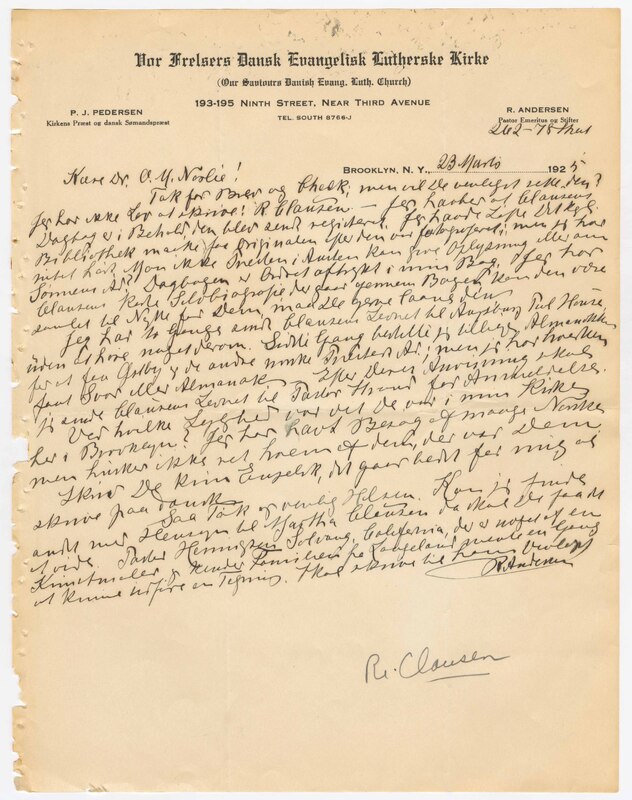 Vor Frelsers Dansk Evangelisk Lutherske Kirke
(Our Saviours Danish Evang. Luth. Church)
193-195 NINTH STREET, NEAR THIRD AVENUE
TEL. SOUTH 8766-J
P. J. PEDERSEN
Kirkens Præst og dansk Sømandspræst
R. ANDERSEN
Pastor Emeritus og Stifter
262-78 Str
BROOKLYN, N. Y., 23 Marts 1925
Kære Dr. O. M. Norlie!
Tak for Brev og Check, men vil De venligst
Jeg har ikke Lov at skrive! R. Clausen - Jeg har Clausens
Dagbog i Behold, den blev sendt registered. Jeg havde Det kgl.
Bibliothek for Originalen efter den var fotograferet, men jeg har
intet hørt. Mon ikke Præsten i Austin kan give Oplysning eller om
Sønnens Dagbogen er Ordret aftrykt i min Bog. Jeg har
Clausens korte Selvbiografi der gaar gennem Bogen, kan den være
til Nytte for Dem, maa De gerne laane den
Jeg har to Gange sendt Clausens Levnet til Augsburg Pub House,
uden at høre noget derom. Sidste Gang bestilte jeg tillige Almanakken
for at faa og de andre norske men jeg har hverken
faaet Svar eller Almanak - Efter Deres Anvisning skal
jeg sende Clausens Levnet til Pastor Strand for Anmeldelse.
Ved hvilke Lejlighed var det De var i min Kirke
her i Brooklyn? Jeg har havt Besøg af mange Norske
men husker ikke ret hvem af dem, der var Dem.
Skriv De kun Engelsk, det gaar bedst for mig at
skrive paa dansk.
Saa Tak og venlig Hilsen. Kan jeg finde
andet mer Hensyn til Martha Clausen da skal De faa det
at vide. Pastor Solvang, California, der er noget af en
Kunstmaler & kender Familien fra Langeland mente en Gang
at kunne udføre en Tegning. Skal skrive til ham
R. Andersen
Re. Clausen